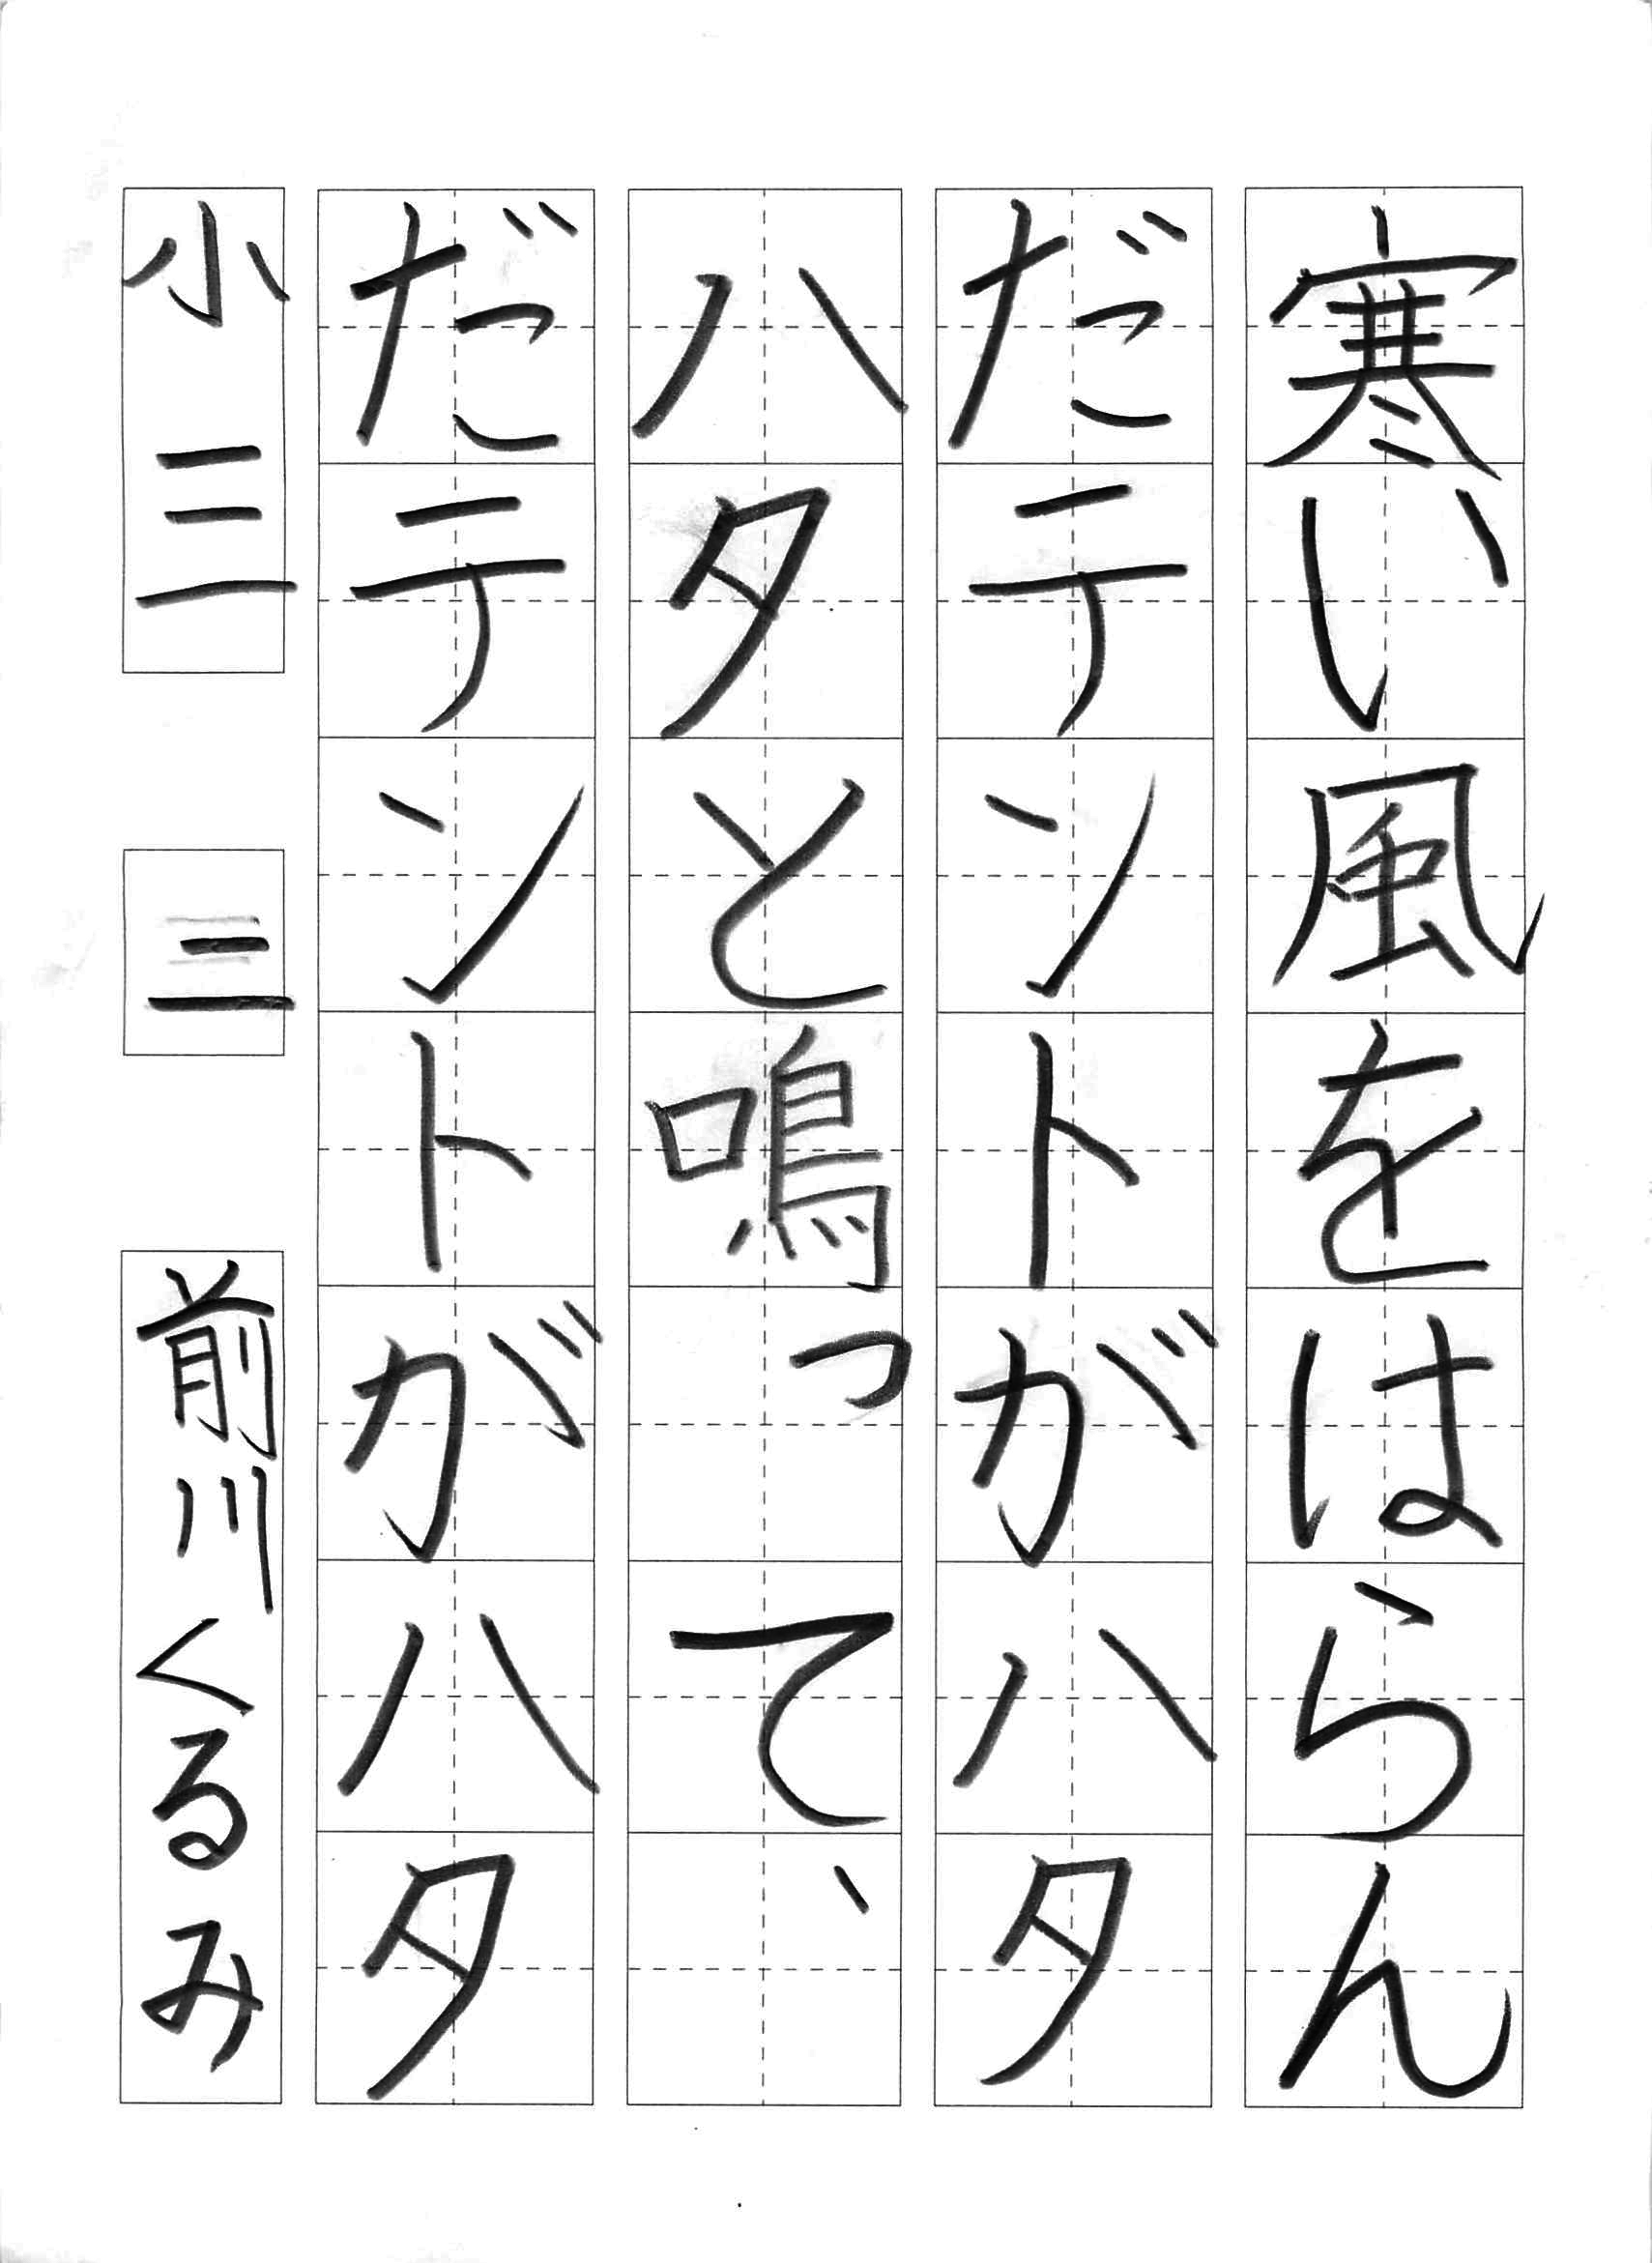 寒い風をはらん
だテントがハタ
ハタと鳴って、
だテントがハタ
小三
二
前川くるみ